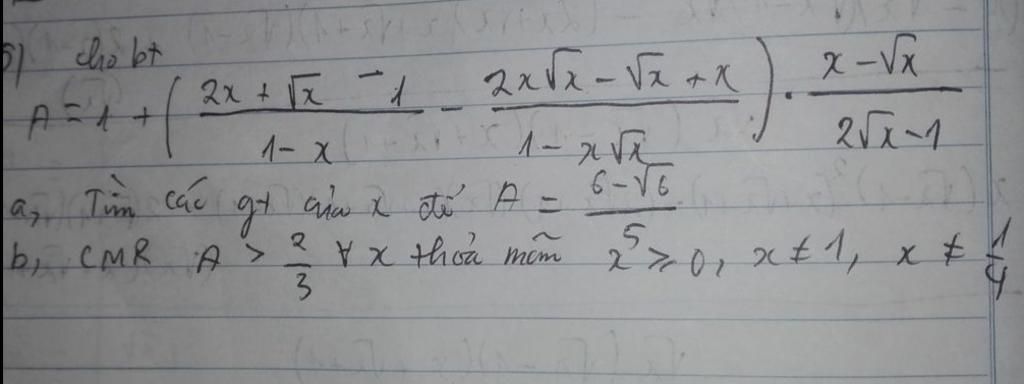 5) cho bt
A = 1 + ( (2x + √x - 1)/(1 - x) - (2x√x - √x + x)/(1 - x√x) ) . (x - √x)/(2√x - 1)
a, Tìm các gt của x để A = (6 - √6)/5
b, CMR A > 2/3 ∀ x thoả mãn x ≥ 0, x ≠ 1, x ≠ 1/4